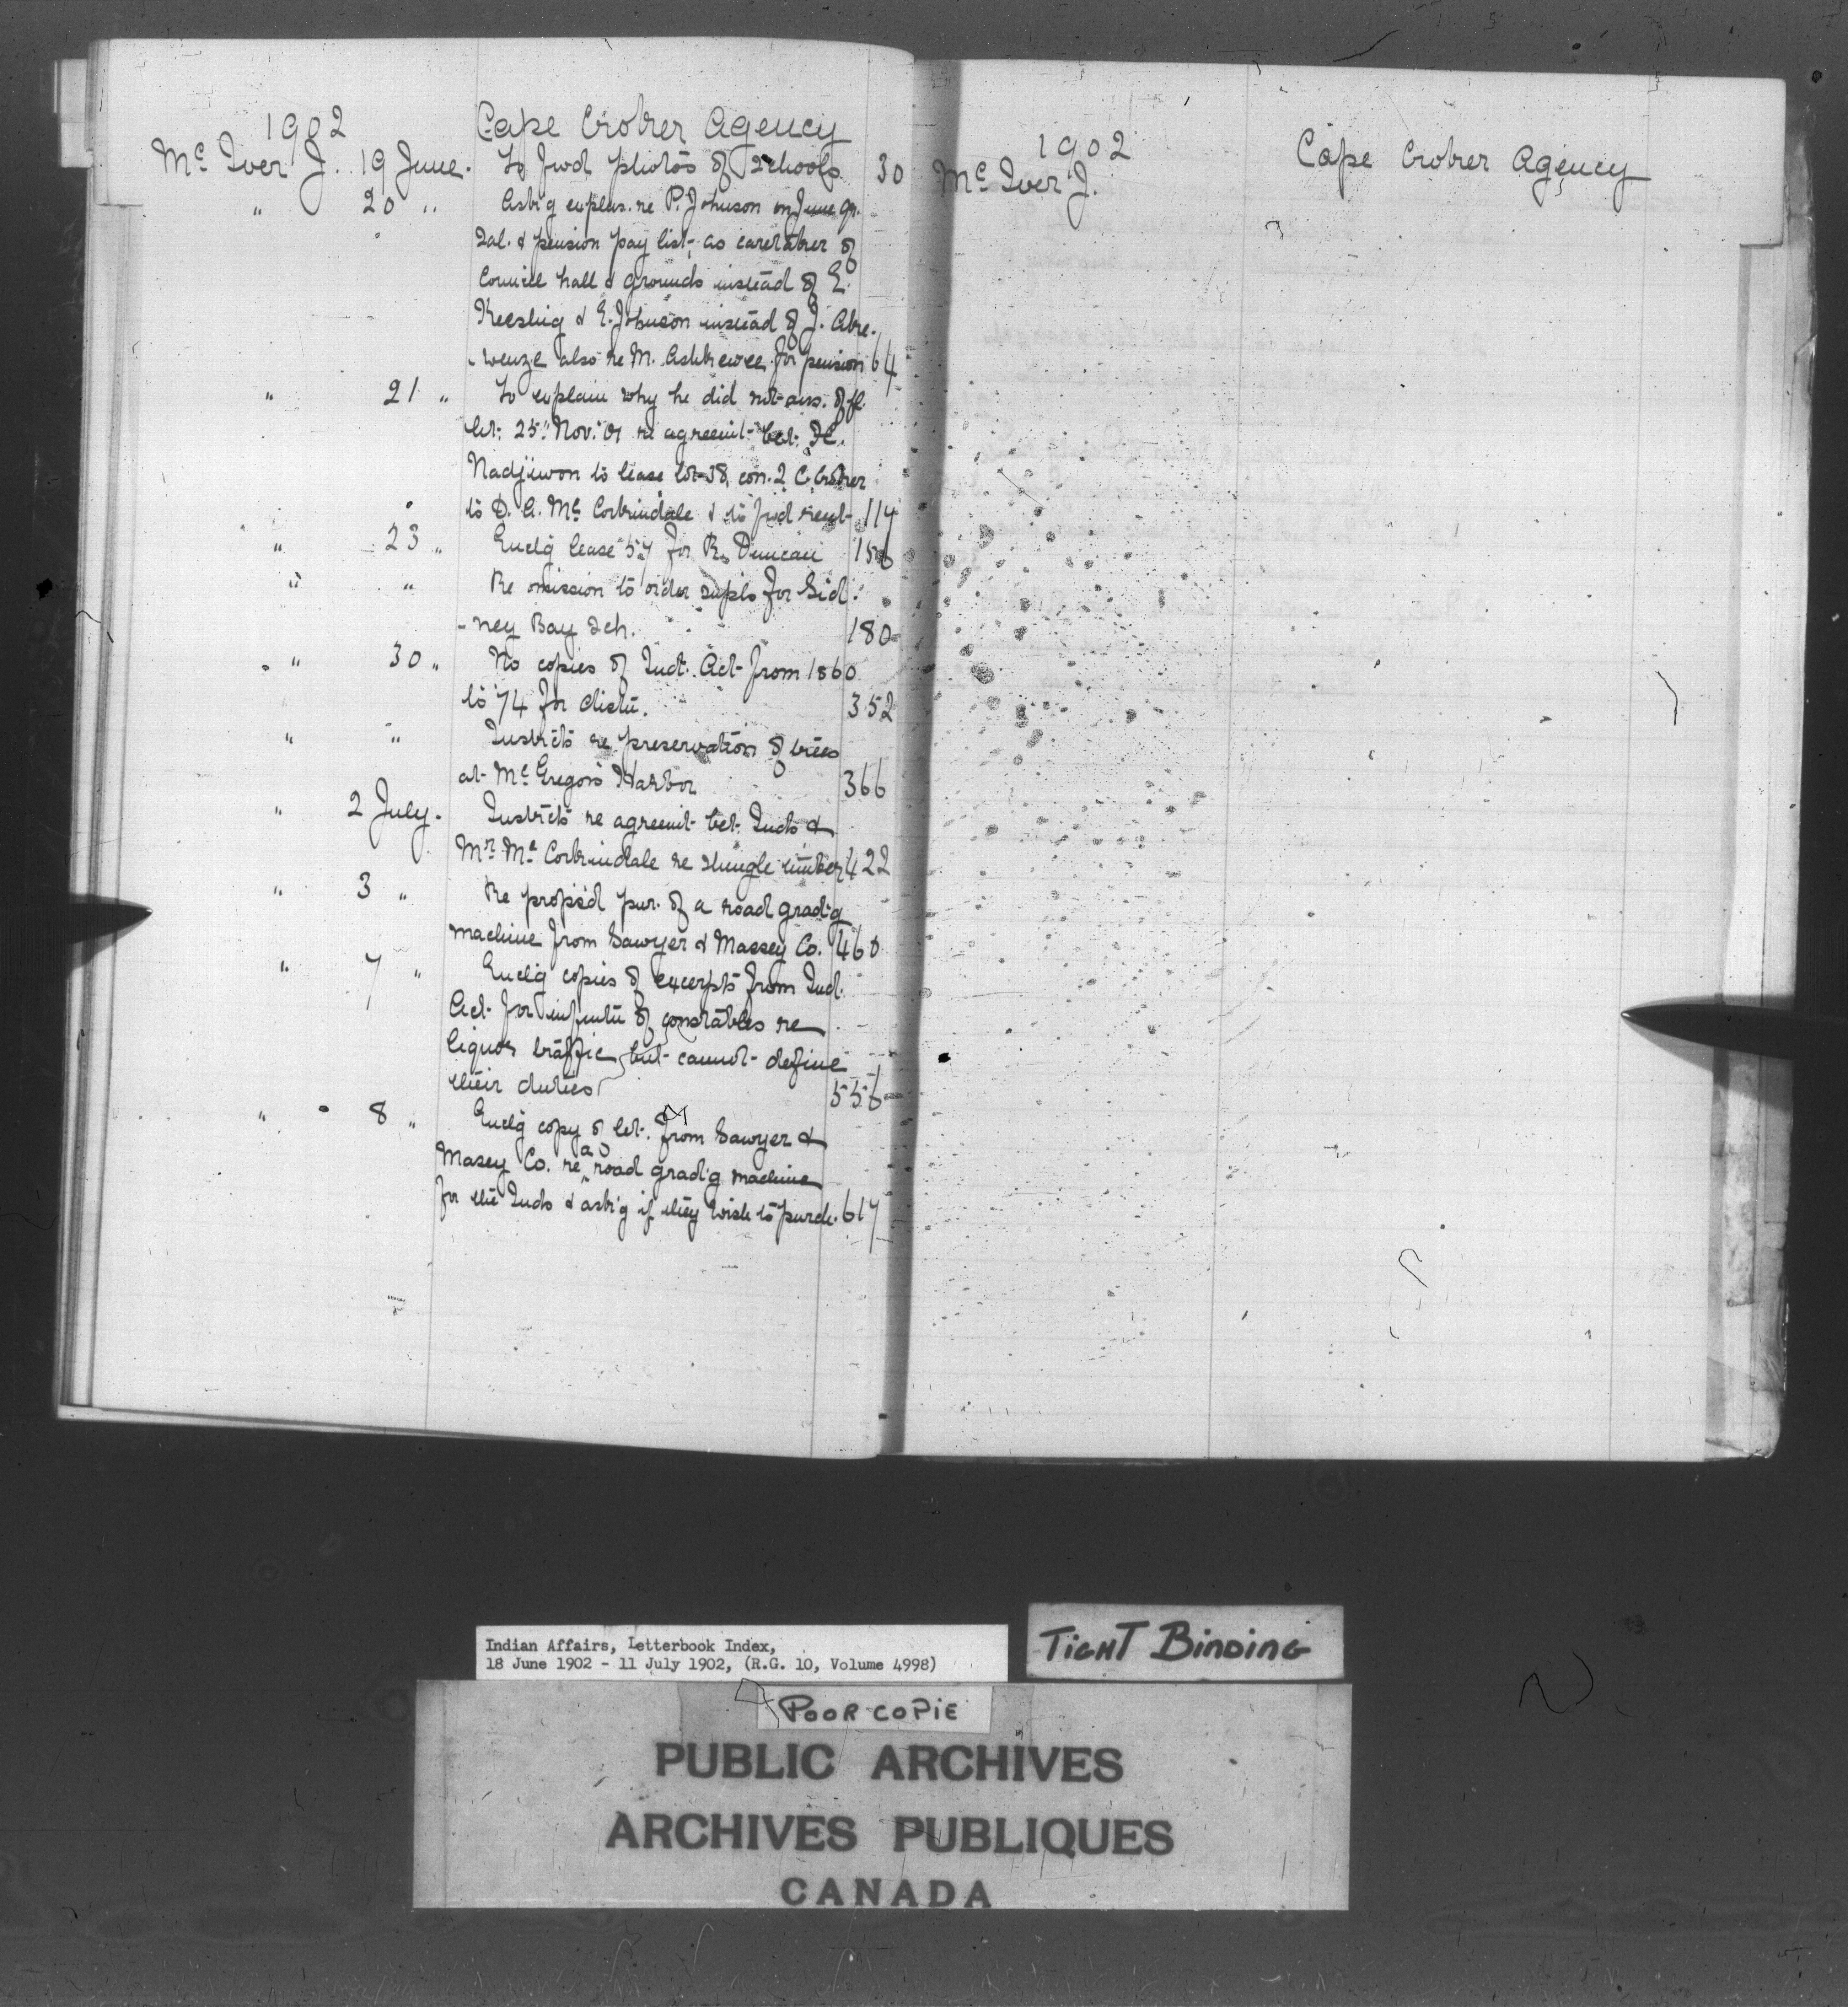 1902 Cape Croker Agency
McIver J. 19 June. To fwd photos of schools 30
" 20 " Ask'g explan. re P. Johnson on June qr.
Sal. & pension pay list, as caretaker of
Council hall & grounds instead of E.
Keeshig & E. Johnson instead of J. Ake-
-wenze also re M. Ashkewee for pension 64
" 21 " To explain why he did not ans. offl.
let. 25" Nov. 01 re agreemt. bet.
Nadjiwon to lease lot 38, con. 2 C. Croker
to D. A. Mc Corkindale & to fwd rent 114
" 23 " Enclg lease 57 for R. Duncan 156
" " Re omission to order supls for Sid-
-ney Bay Sch. 180
" 30 " No copies of Indt. Act from 1860
to 74 for distn. 352
" " Instrcts re preservation of trees
at McGregors Harbor 366
" 2 July. Instrcts re agreemt bet. Inds &
Mr. McCorkindale re shingle timber 422
" 3 " Re propsed pur. of a road grad'g
machine from Sawyer & Massey Co. 460
" 7 " Enclg copies of excerpts from Ind.
Act for infmtn of constables re
liquor traffic, but cannot define
their duties 556
" 8 " Enclg copy of let. from Sawyer &
Masey Co. re a road grad'g machine
for the Inds & ask'g if they wish to purch. 617
1902 Cape Croker Agency
McIver J.
Indian Affairs, Letterbook Index,
18 June 1902 - 11 July 1902, (R.G. 10, Volume 4998)
TIGHT BINDING
POOR COPIE
PUBLIC ARCHIVES
ARCHIVES PUBLIQUES
CANADA